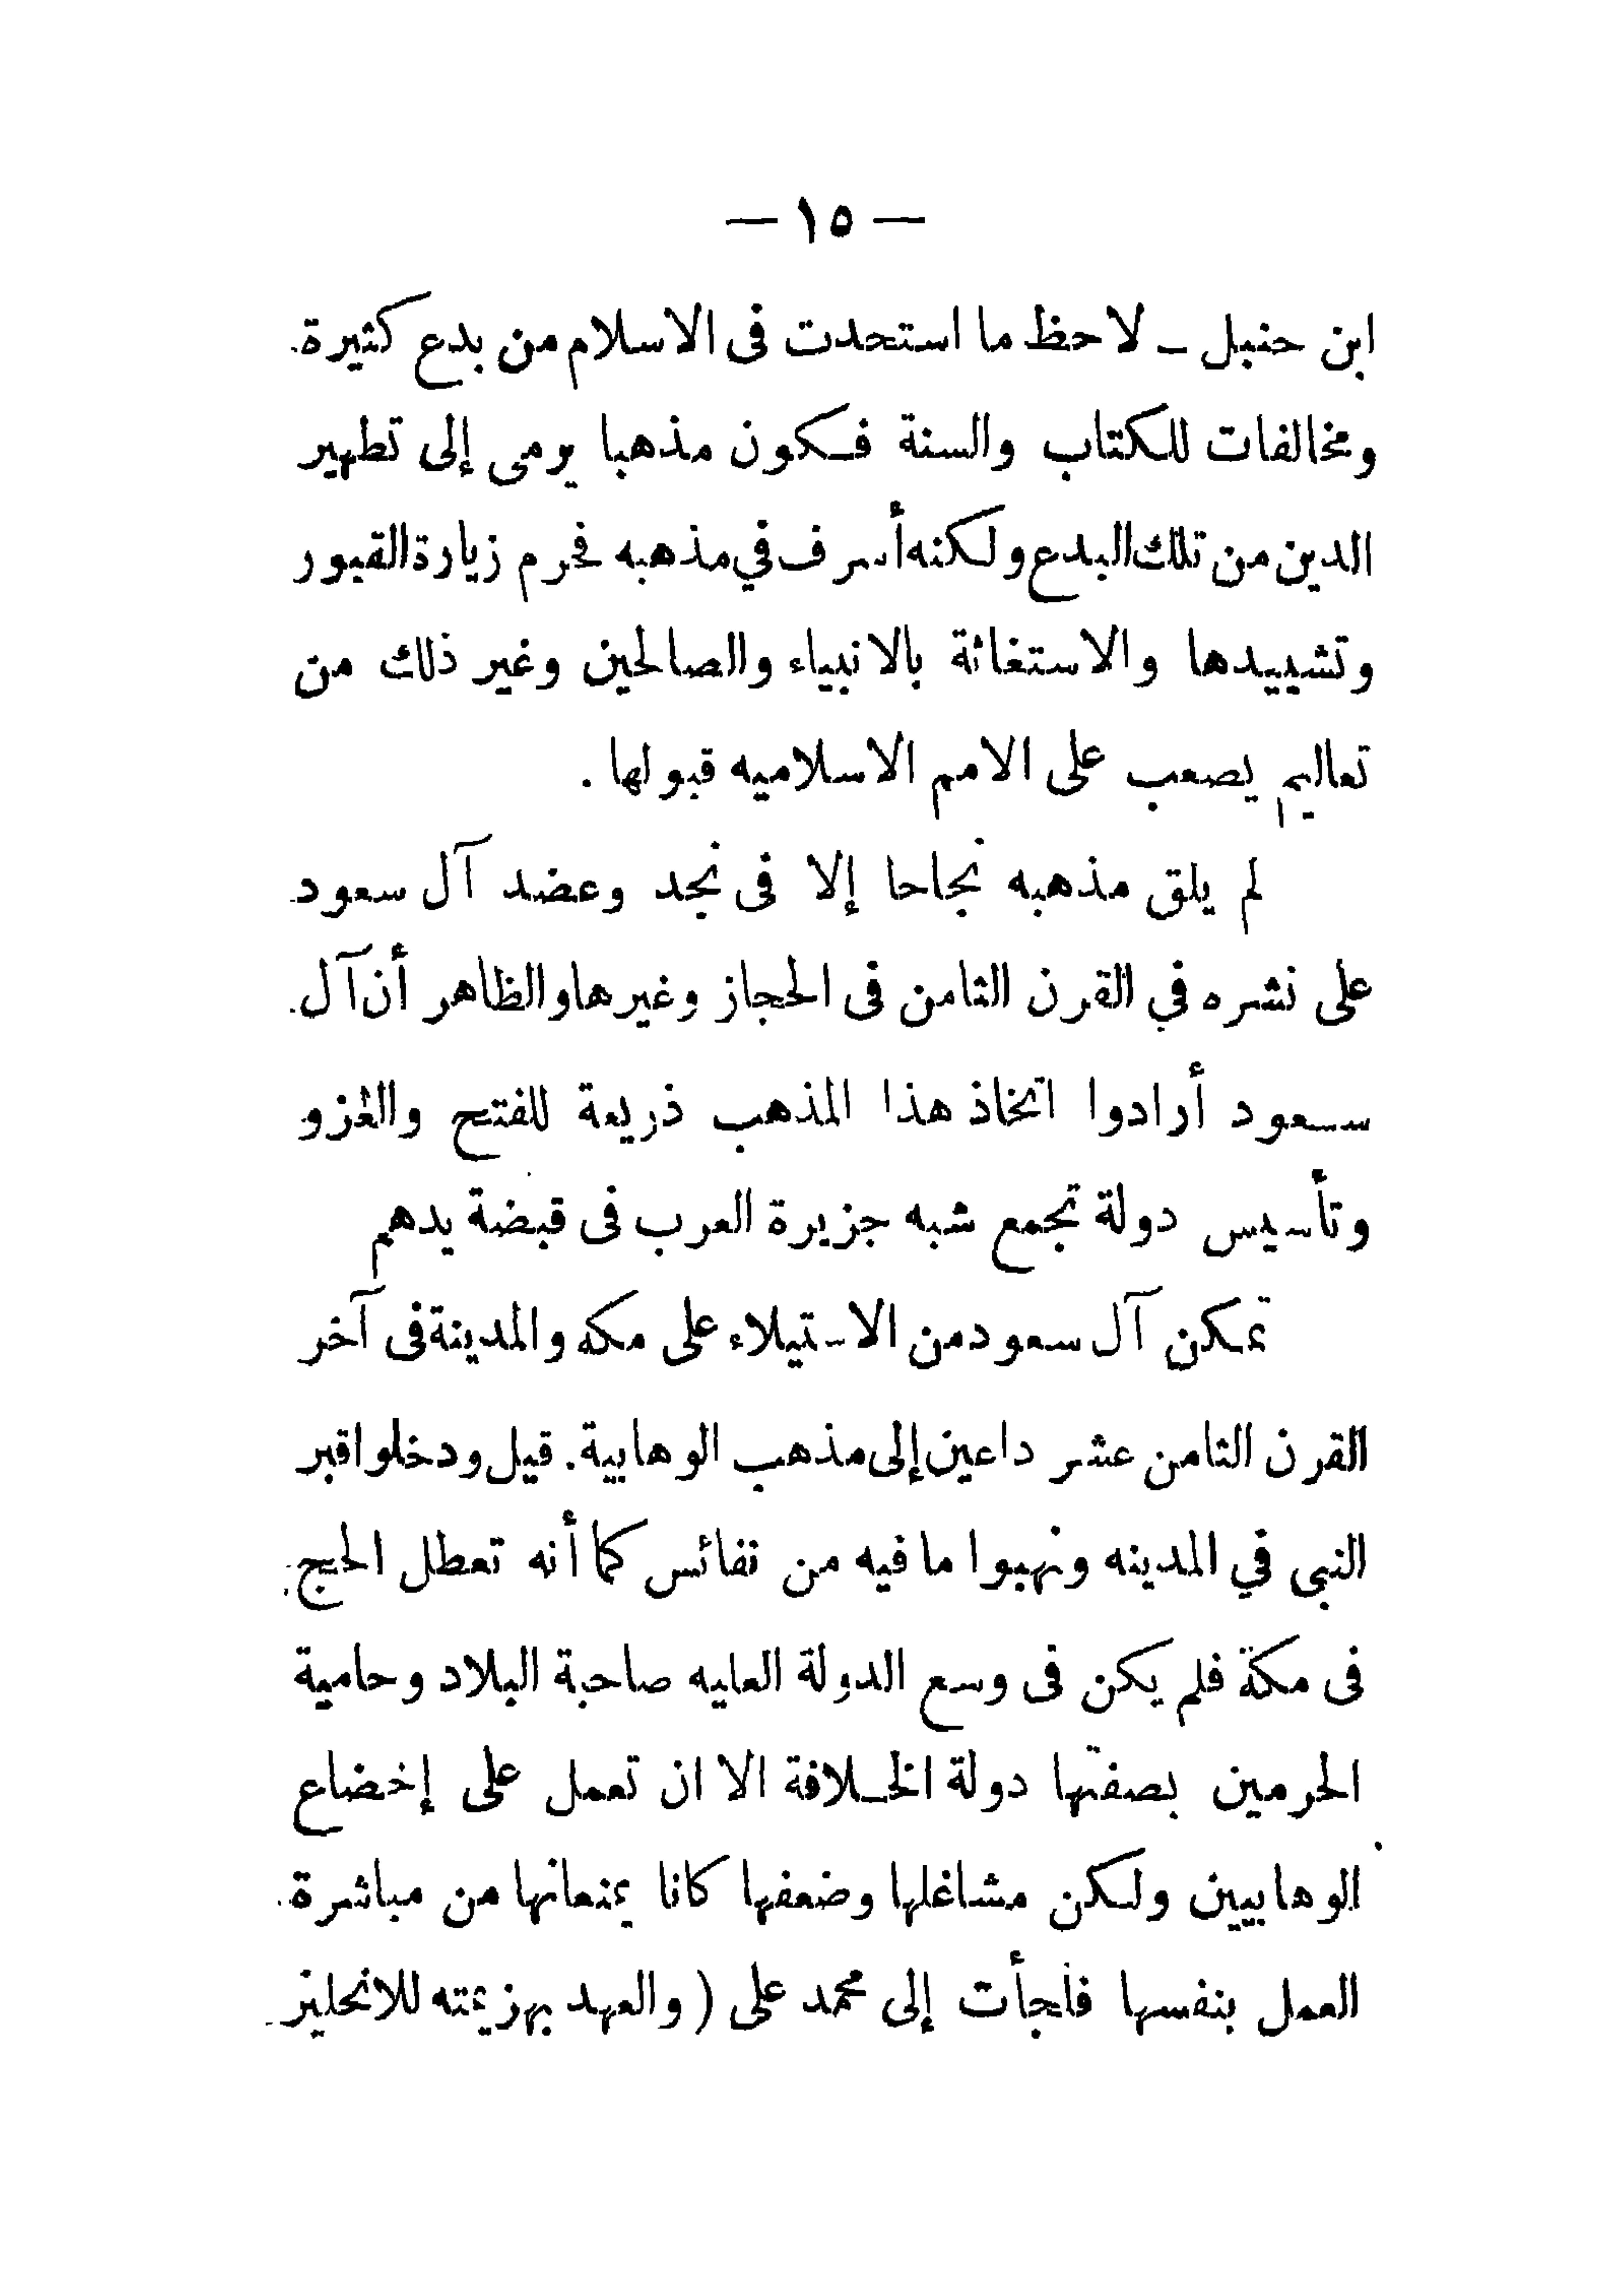 — ١٥ —
ابن حنبل ــ لاحظ ما استحدت فى الاسلام من بدع كثيرة
ومخالفات للكتاب والسنة فكون مذهبا يرمى إلى تطهير
الدين من تلك البدع ولكنه أسرف في مذهبه فحرم زيارة القبور
وتشييدها والاستغاثة بالانبياء والصالحين وغير ذلك من
تعاليم يصعب على الامم الاسلاميه قبولها .
لم يلق مذهبه نجاحا إلا فى نجد وعضد آل سعود
على نشره في القرن الثامن فى الحجاز وغيرها والظاهر أن آل
سعود أرادوا اتخاذ هذا المذهب ذريعة للفتح والغزو
وتأسيس دولة تجمع شبه جزيرة العرب فى قبضة يدهم
تمكن آل سعود من الاستيلاء على مكه والمدينة فى آخر
القرن الثامن عشر داعين إلى مذهب الوهابية. قيل ودخلوا قبر
النبى في المدينه ونهبوا ما فيه من نفائس كما أنه تعطل الحج
فى مكة فلم يكن فى وسع الدولة العليه صاحبة البلاد وحامية
الحرمين بصفتها دولة الخلافة الا ان تعمل على إخضاع
الوهابيين ولكن مشاغلها وضعفها كانا يمنعانها من مباشرة
العمل بنفسها فلجأت إلى محمد على ( والعهد بهزيمته للانجليز